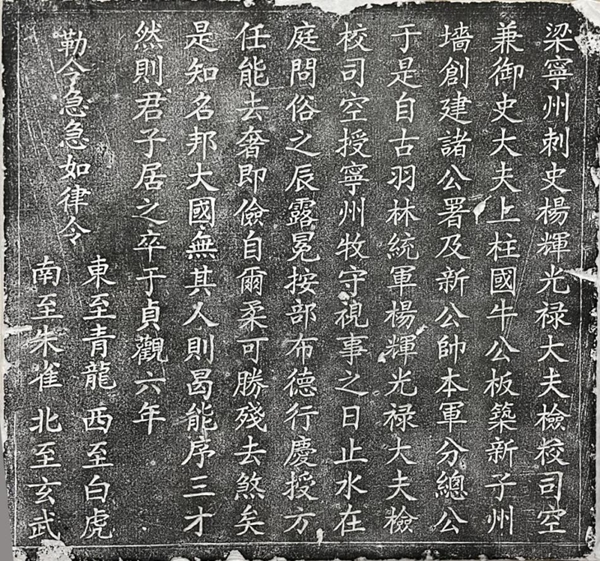 梁寧州刺史楊輝光禄大夫檢校司空
兼御史大夫上柱國牛公板築新子州
墻創建諸公署及新公帥本軍分總公
于是自古羽林統軍楊輝光禄大夫檢
校司空授寧州牧守視事之日止水在
庭問俗之辰露冕按部布德行慶授方
任能去奢即儉自爾柔可勝殘去煞矣
是知名邦大國無其人則曷能序三才
然則君子居之卒于貞觀六年
勅令急急如律令
東至青龍 西至白虎
南至朱雀 北至玄武